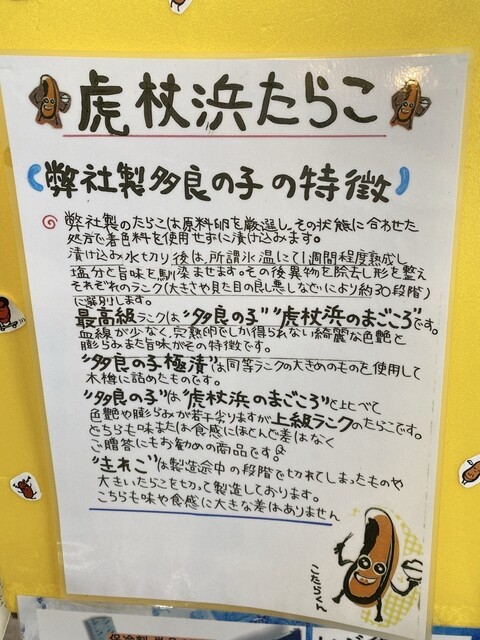 虎杖浜たらこ
弊社製多良の子の特徴
弊社製のたらこは原料卵を厳選し、その状態に合わせた
処方で着色料を使用せずに漬け込みます。
漬け込み水切り後は、所謂氷温にて1週間程度熟成し
塩分と旨味を馴染ませます。その後異物を除去し形を整え
それぞれのランク(大きさや見た目の良し悪しなどにより約30段階)
に選別します。
最高級ランクは"多良の子""虎杖浜のまごころ"です。
血線が少なく、完熟卵でしか得られない綺麗な色艶と
膨らみまた旨味がその特徴です。
"多良の子極漬"は同等ランクの大きめのものを使用して
木樽に詰めたものです。
"多良の子"は"虎杖浜のまごころ"と比べて
色艶や膨らみが若干劣りますが上級ランクのたらこです。
どちらも味または食感にほとんど差はなく
ご贈答にもお勧めの商品です。
"きれこ"は製造途中の段階で切れてしまったものや
大きいたらこを切って製造しております。
こちらも味や食感に大きな差はありません
こたらくん